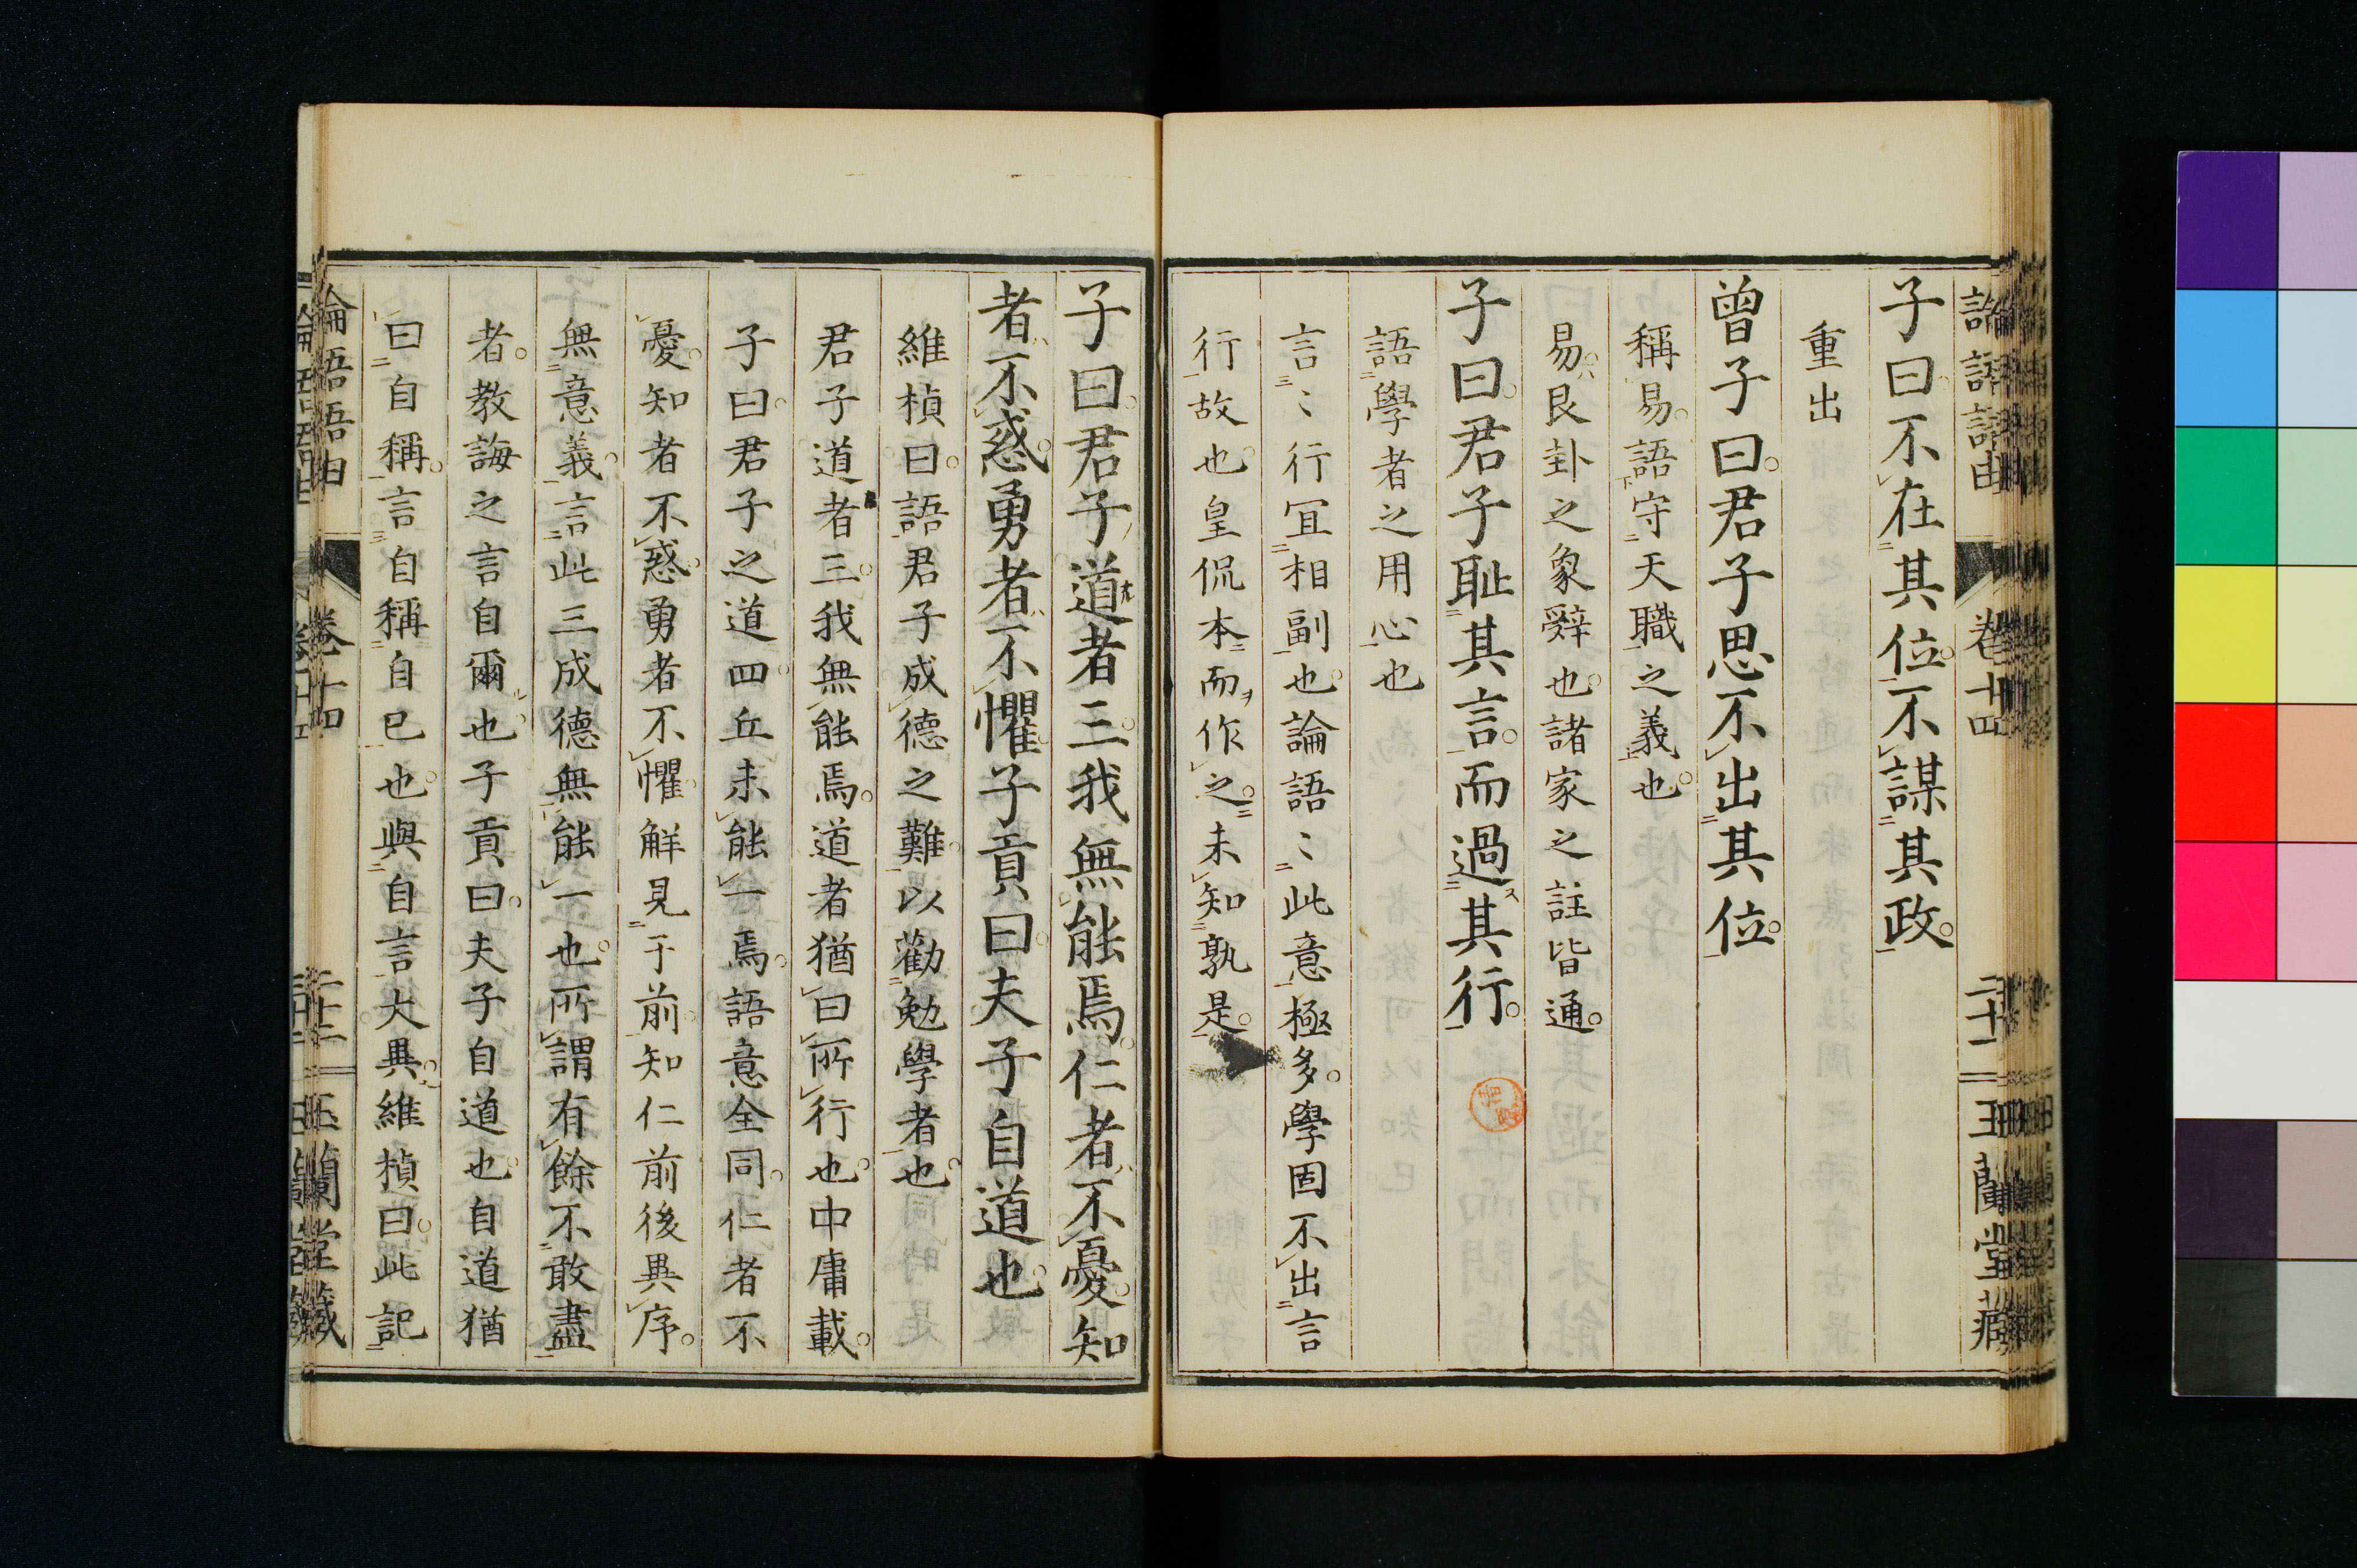 子曰不在其位不謀其政
重出
曾子曰君子思不出其位
稱易語守天職之義也
易艮卦之象辭也諸家之註皆通
子曰君子耻其言而過其行
語學者之用心也
言〻行宜相副也論語〻此意極多學固不出言
行故也皇侃本而作之未知孰是
子曰君子道者三我無能焉仁者不憂知
者不惑勇者不懼子貢曰夫子自道也
維楨曰語君子成德之難以勸勉學者也
君子道者三我無能焉道者猶曰所行也中庸載
子曰君子之道四丘未能一焉語意全同仁者不
憂知者不惑勇者不懼解見于前知仁前後異序
無意義言此三成德無能一也所謂有餘不敢盡
者教誨之言自爾也子貢曰夫子自道也自道猶
曰自稱言自稱自已也與自言大異維楨曰此記
論語語由 卷十四 二十二 玉蘭堂藏